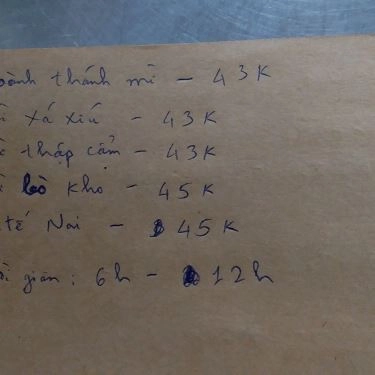 oành thánh mì - 43K
ì xá xíu - 43K
thập cẩm - 43K
bò kho - 45K
tế Nai - 45K
ời gian: 6h - 12h